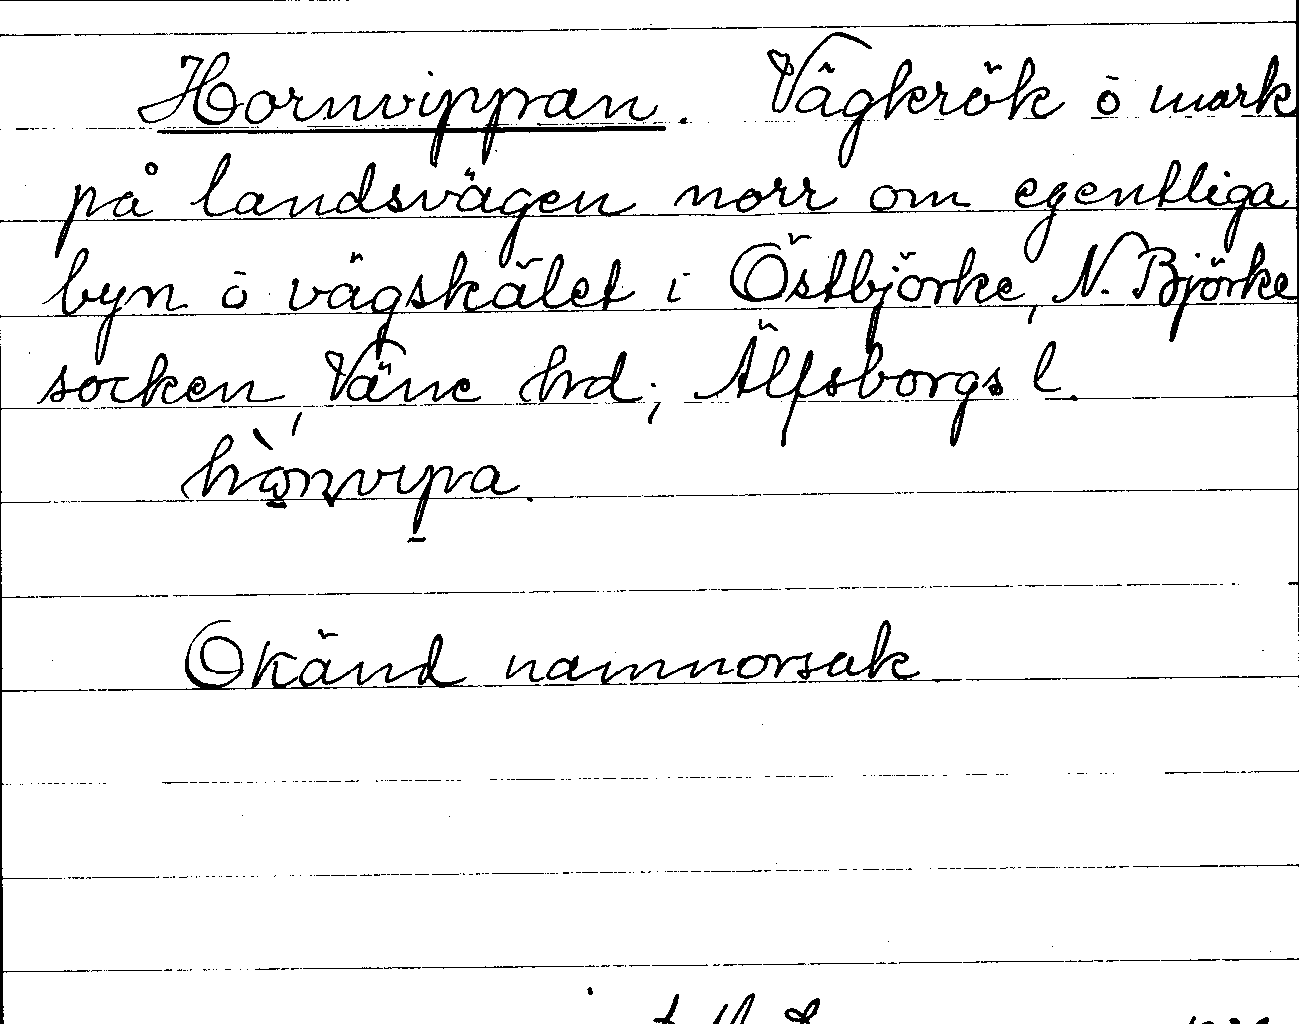 Hornvippan. Vägkrök o mark
på landsvägen norr om egentliga
byn o vägskälet i Östbjörke, N. Björke
socken, Väne hrd; Älfsborgs l.
Okänd namnorsak